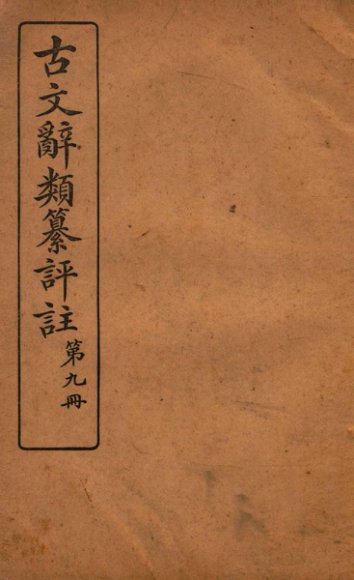 古文辭類纂評註
第九冊